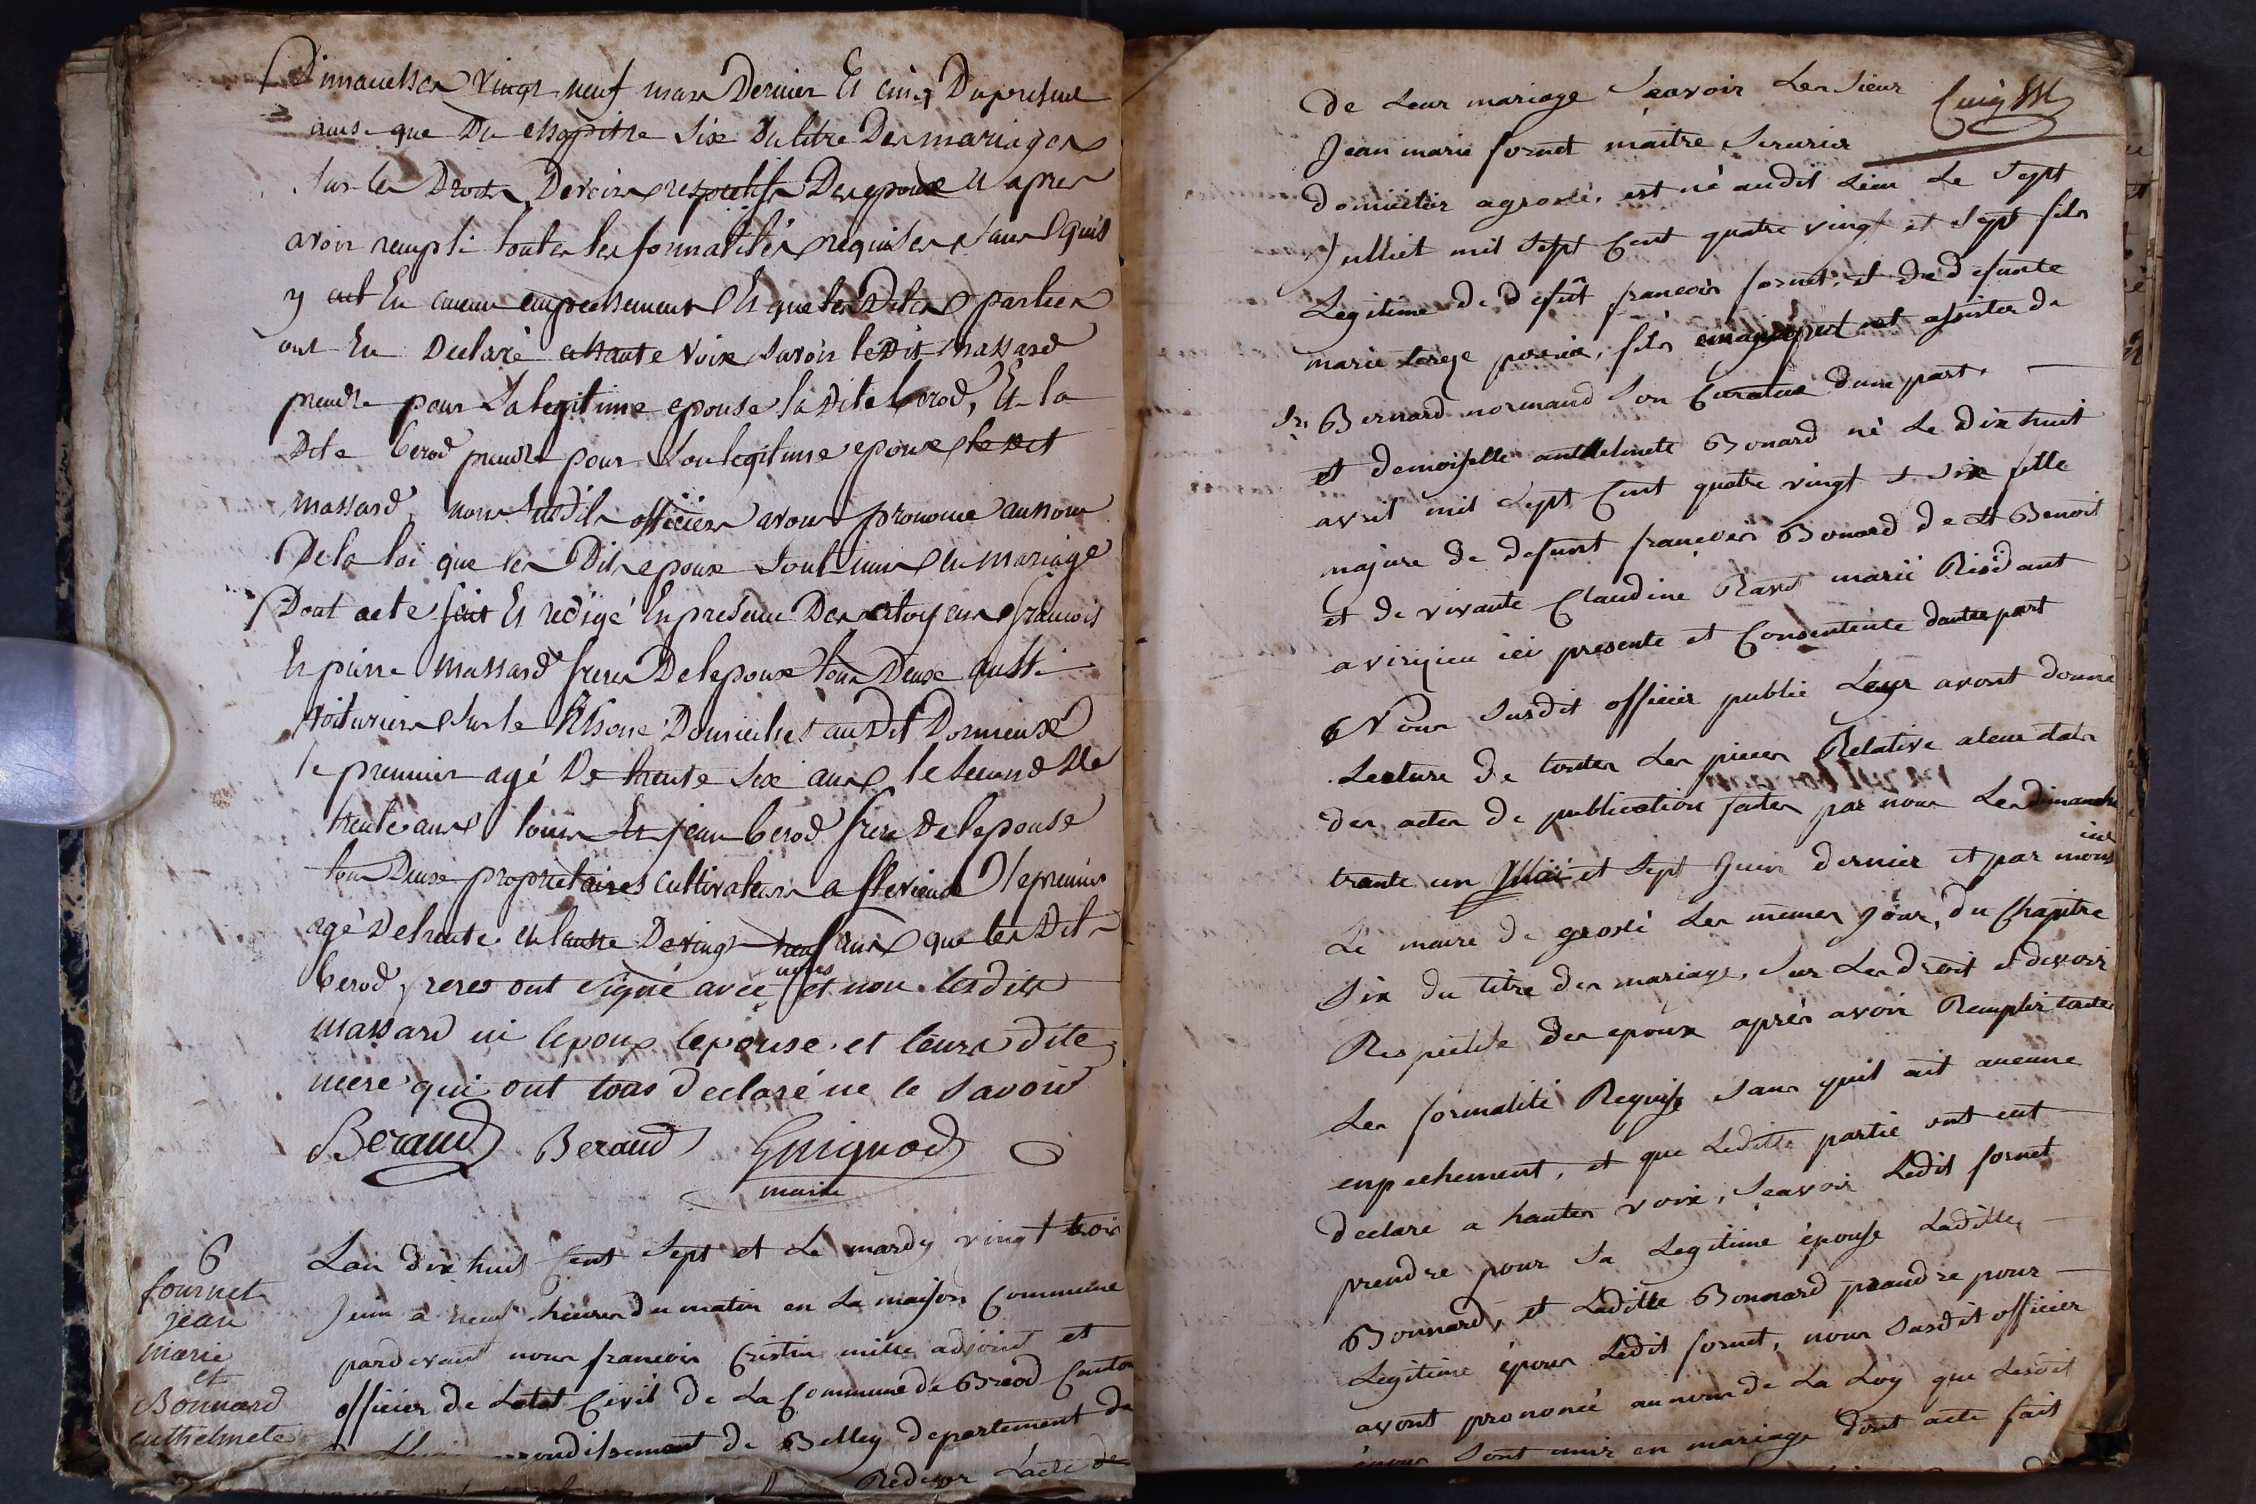 Dimanches vingt neuf mars Dernier Et cinq Dupresent
ainsi que Du chapitre Six Dutitre Des mariages
Sur les Droits Devoirs respectifs Des epoux et apres
avoir rempli toutes les formalités requises Sans quil
y eut Eu aucun empechement Et que les Dites parties
ont Eu Declaré a haute voix Savoir ledit Massard
prendre pour Sa legitime epouse la Dite berod, Et la
Dite berod prendre pour Son legitime epoux le dit
massard, nous susdits officier avons prononcé aunom
De la loi que les Dits epoux Sont unis en mariage
Dont acte fait Et redigé En presence Des citoyens francois
Et pierre Massard freres De lepoux tous Deux aussi
voituriers Sur le Rhone Domiciliés audit Dornieux
le premier agé De trente Six ans le Second De
trente ans louis Et jean berod freres De lepouse
tous Deux proprietaires cultivateurs a flevieux le premier
agé De trente et lautre De vingt neuf ans que les Dits
berod freres ont Signé avec nous et non lesdits
massard ni lepoux lepouse et leurs dite
mere qui ont tous declaré ne le Savoir
Beraud Beraud Guignod
maire
6
fournet
jean
marie
et
Bonnard
enthelmete
Lan dix huit Cent Sept et Le mardy vingt trois
Juin a neuf heures du matin en La maison Commune
pardevant nous francois Cristin mille adjoint et
officier de Letat Civil de La Commune de Breod Canton
arrondissement de Belley departement de
Rediger Lacte de
de Leur mariage Scavoir Les Sieur
Jean marie fornet maitre Serurier
domicilier agroslé, est né audit Lieu Le Sept
Julliet mil Sept Cent quatre vingt et Sept fils
Legitime de defut francois fornet, et de defunte
marie large poncin, fils emancipé et assister de
Sr. Bernard normand Son Curateur dune part,
et demoiselle anthelmete Bonard né Le dix huit
avril mil Sept Cent quatre vingt et Six fille
majure de defunt francois Bonard de St Benoit
et de vivante Claudine Ravet marié Risidant
a virigieu ici presente et Consentente dautre part
Nous Susdit officier public Leur avont donné
Lecture de toutes Les pieces Relative aleur etat
des actes de publication faites par nous Les dimanche
trante un Mai et Sept Juin dernier et par mons
ieur
Le maire de groslé Les memes jour, du Chapitre
Six du titre des mariage, Sur Les droit et devoir
Respectife des epoux après avoir Remplir toutes
Les formalité Requise Sans quil ait aucune
enpechement, et que Leditte partie ont eut
declare a hautes voix, Scavoir Ledit fornet
prendre pour Sa Legitime épouse Laditte
Bonnard, et Laditte Bonnard prandre pour
Legitime époux Ledit fornet, nous Susdit officier
avont prononcé aunom de La Loy que Lesdit
époux Sont unis en mariage dont acte fait